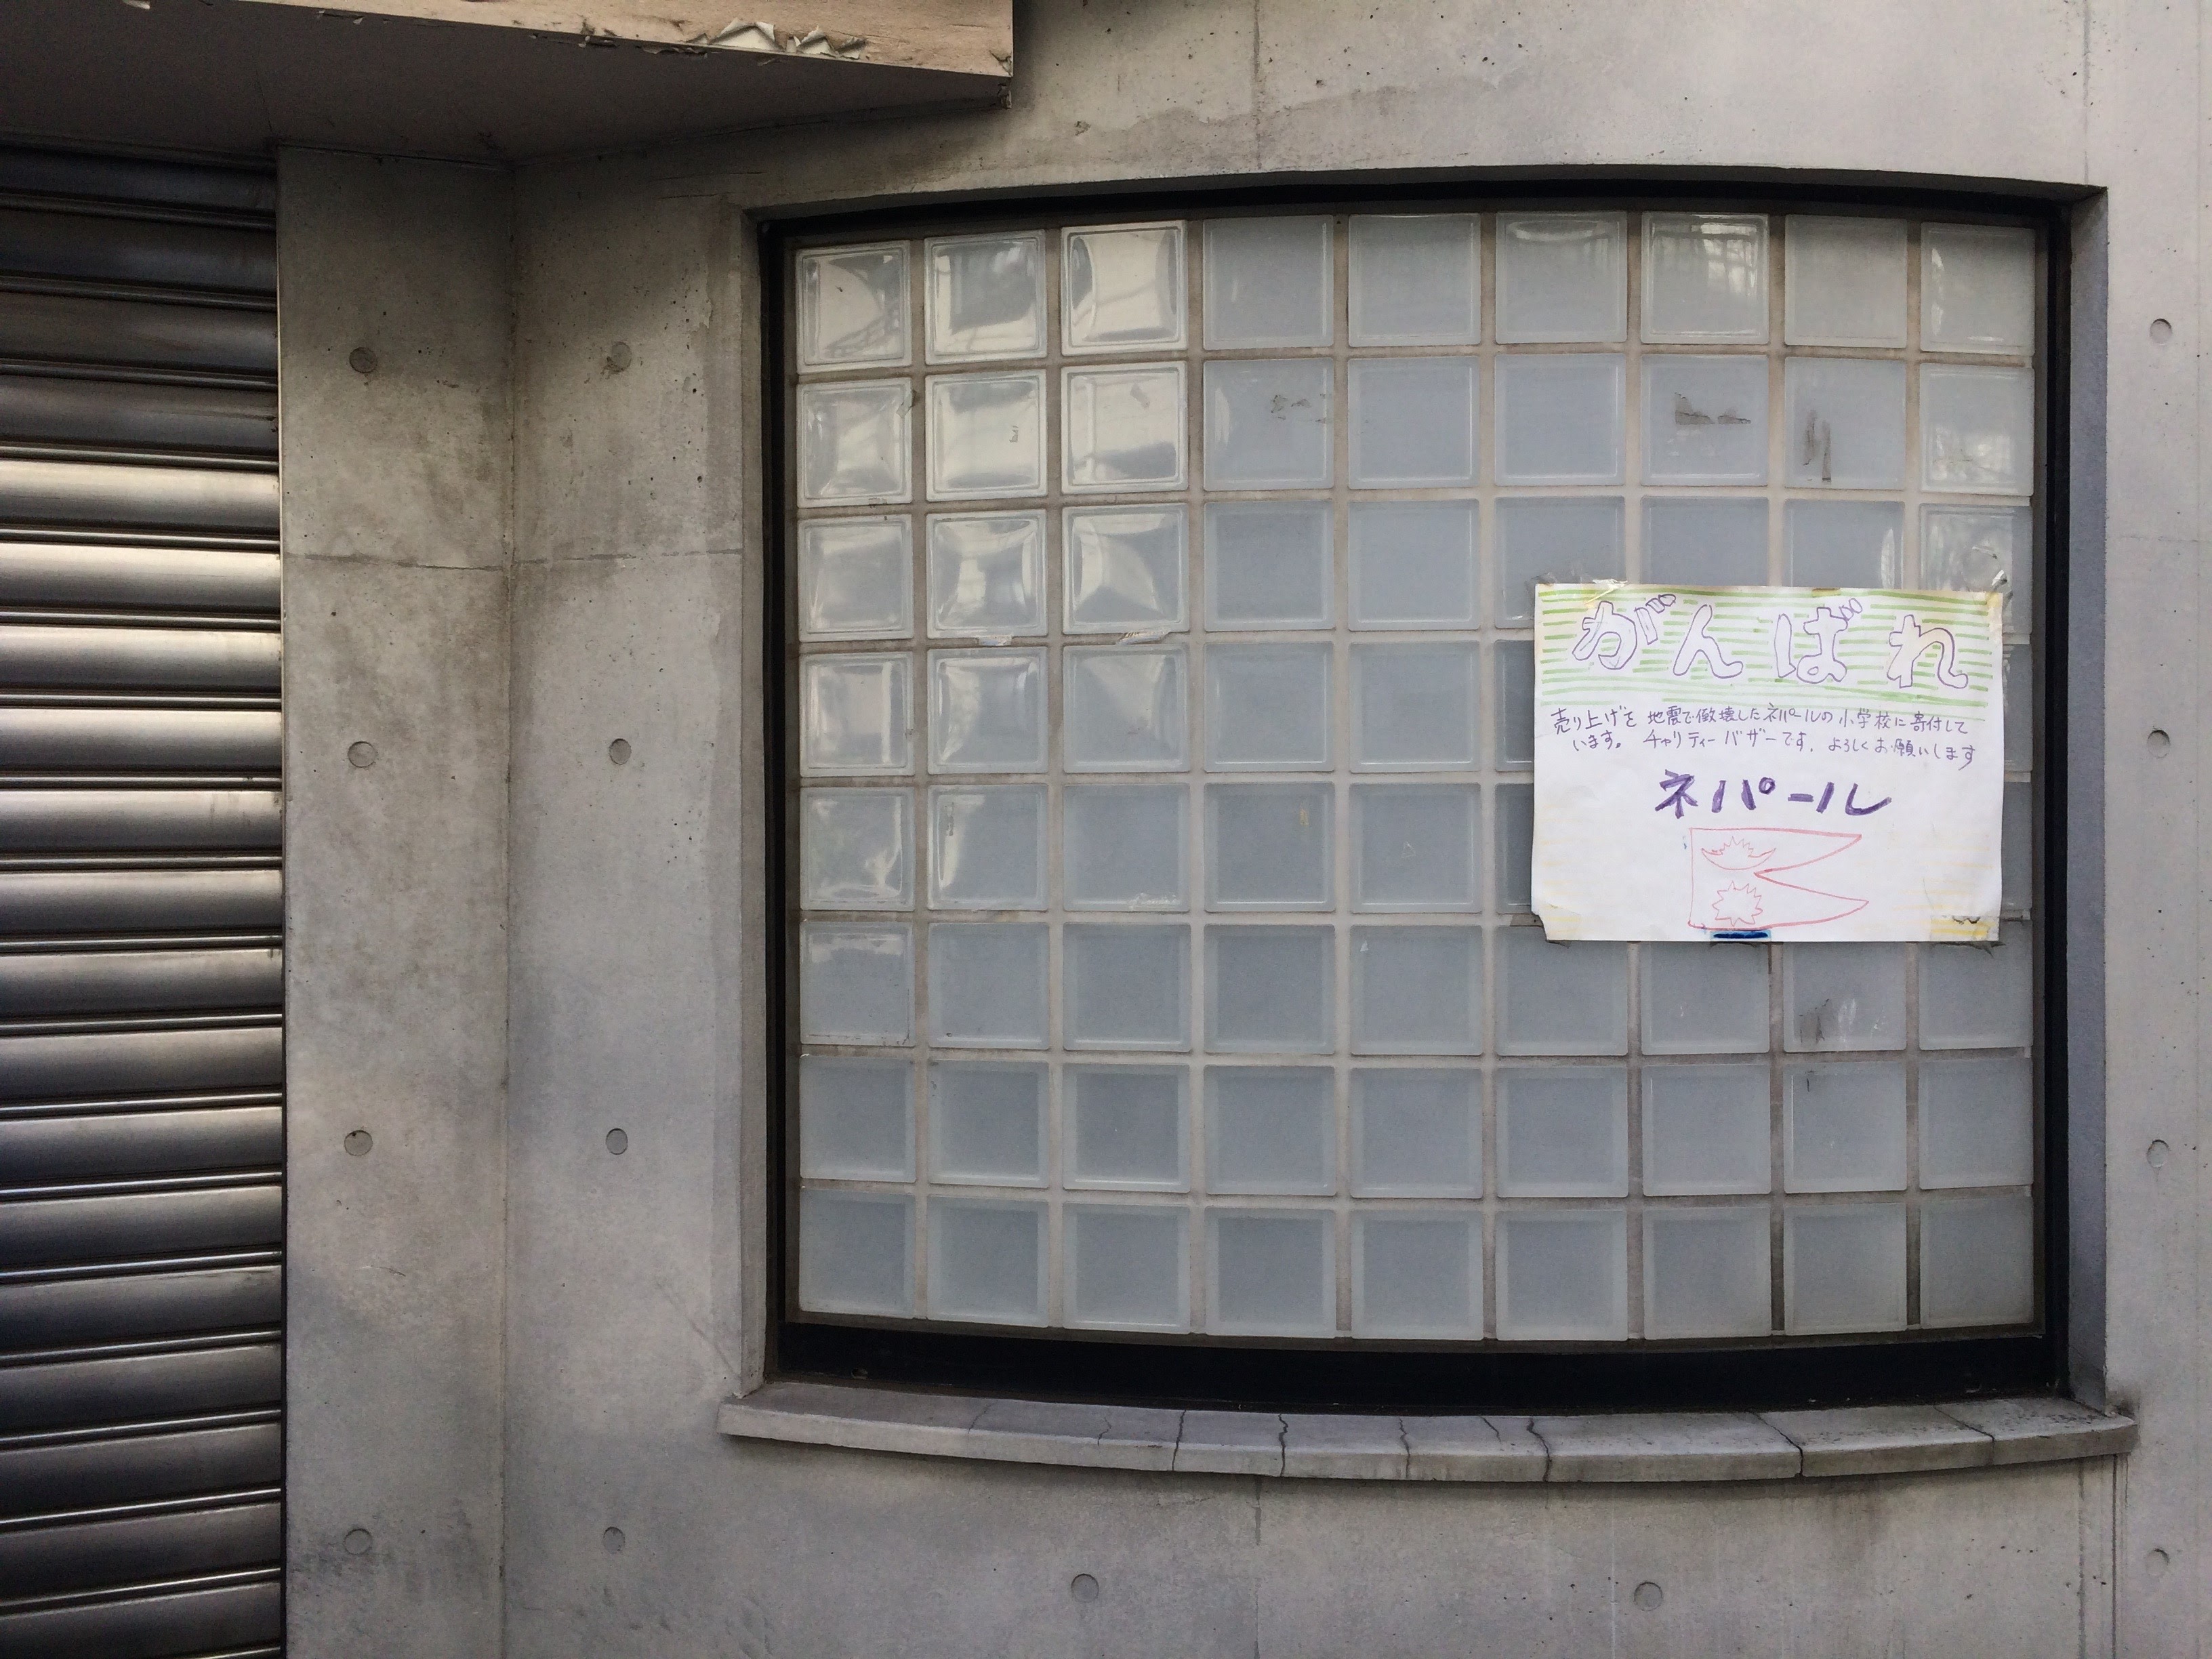 がんばれ
売り上げを 地震で倒壊したネパールの小学校に寄付して
います。 チャリティーバザーです。よろしくお願いします
ネパール